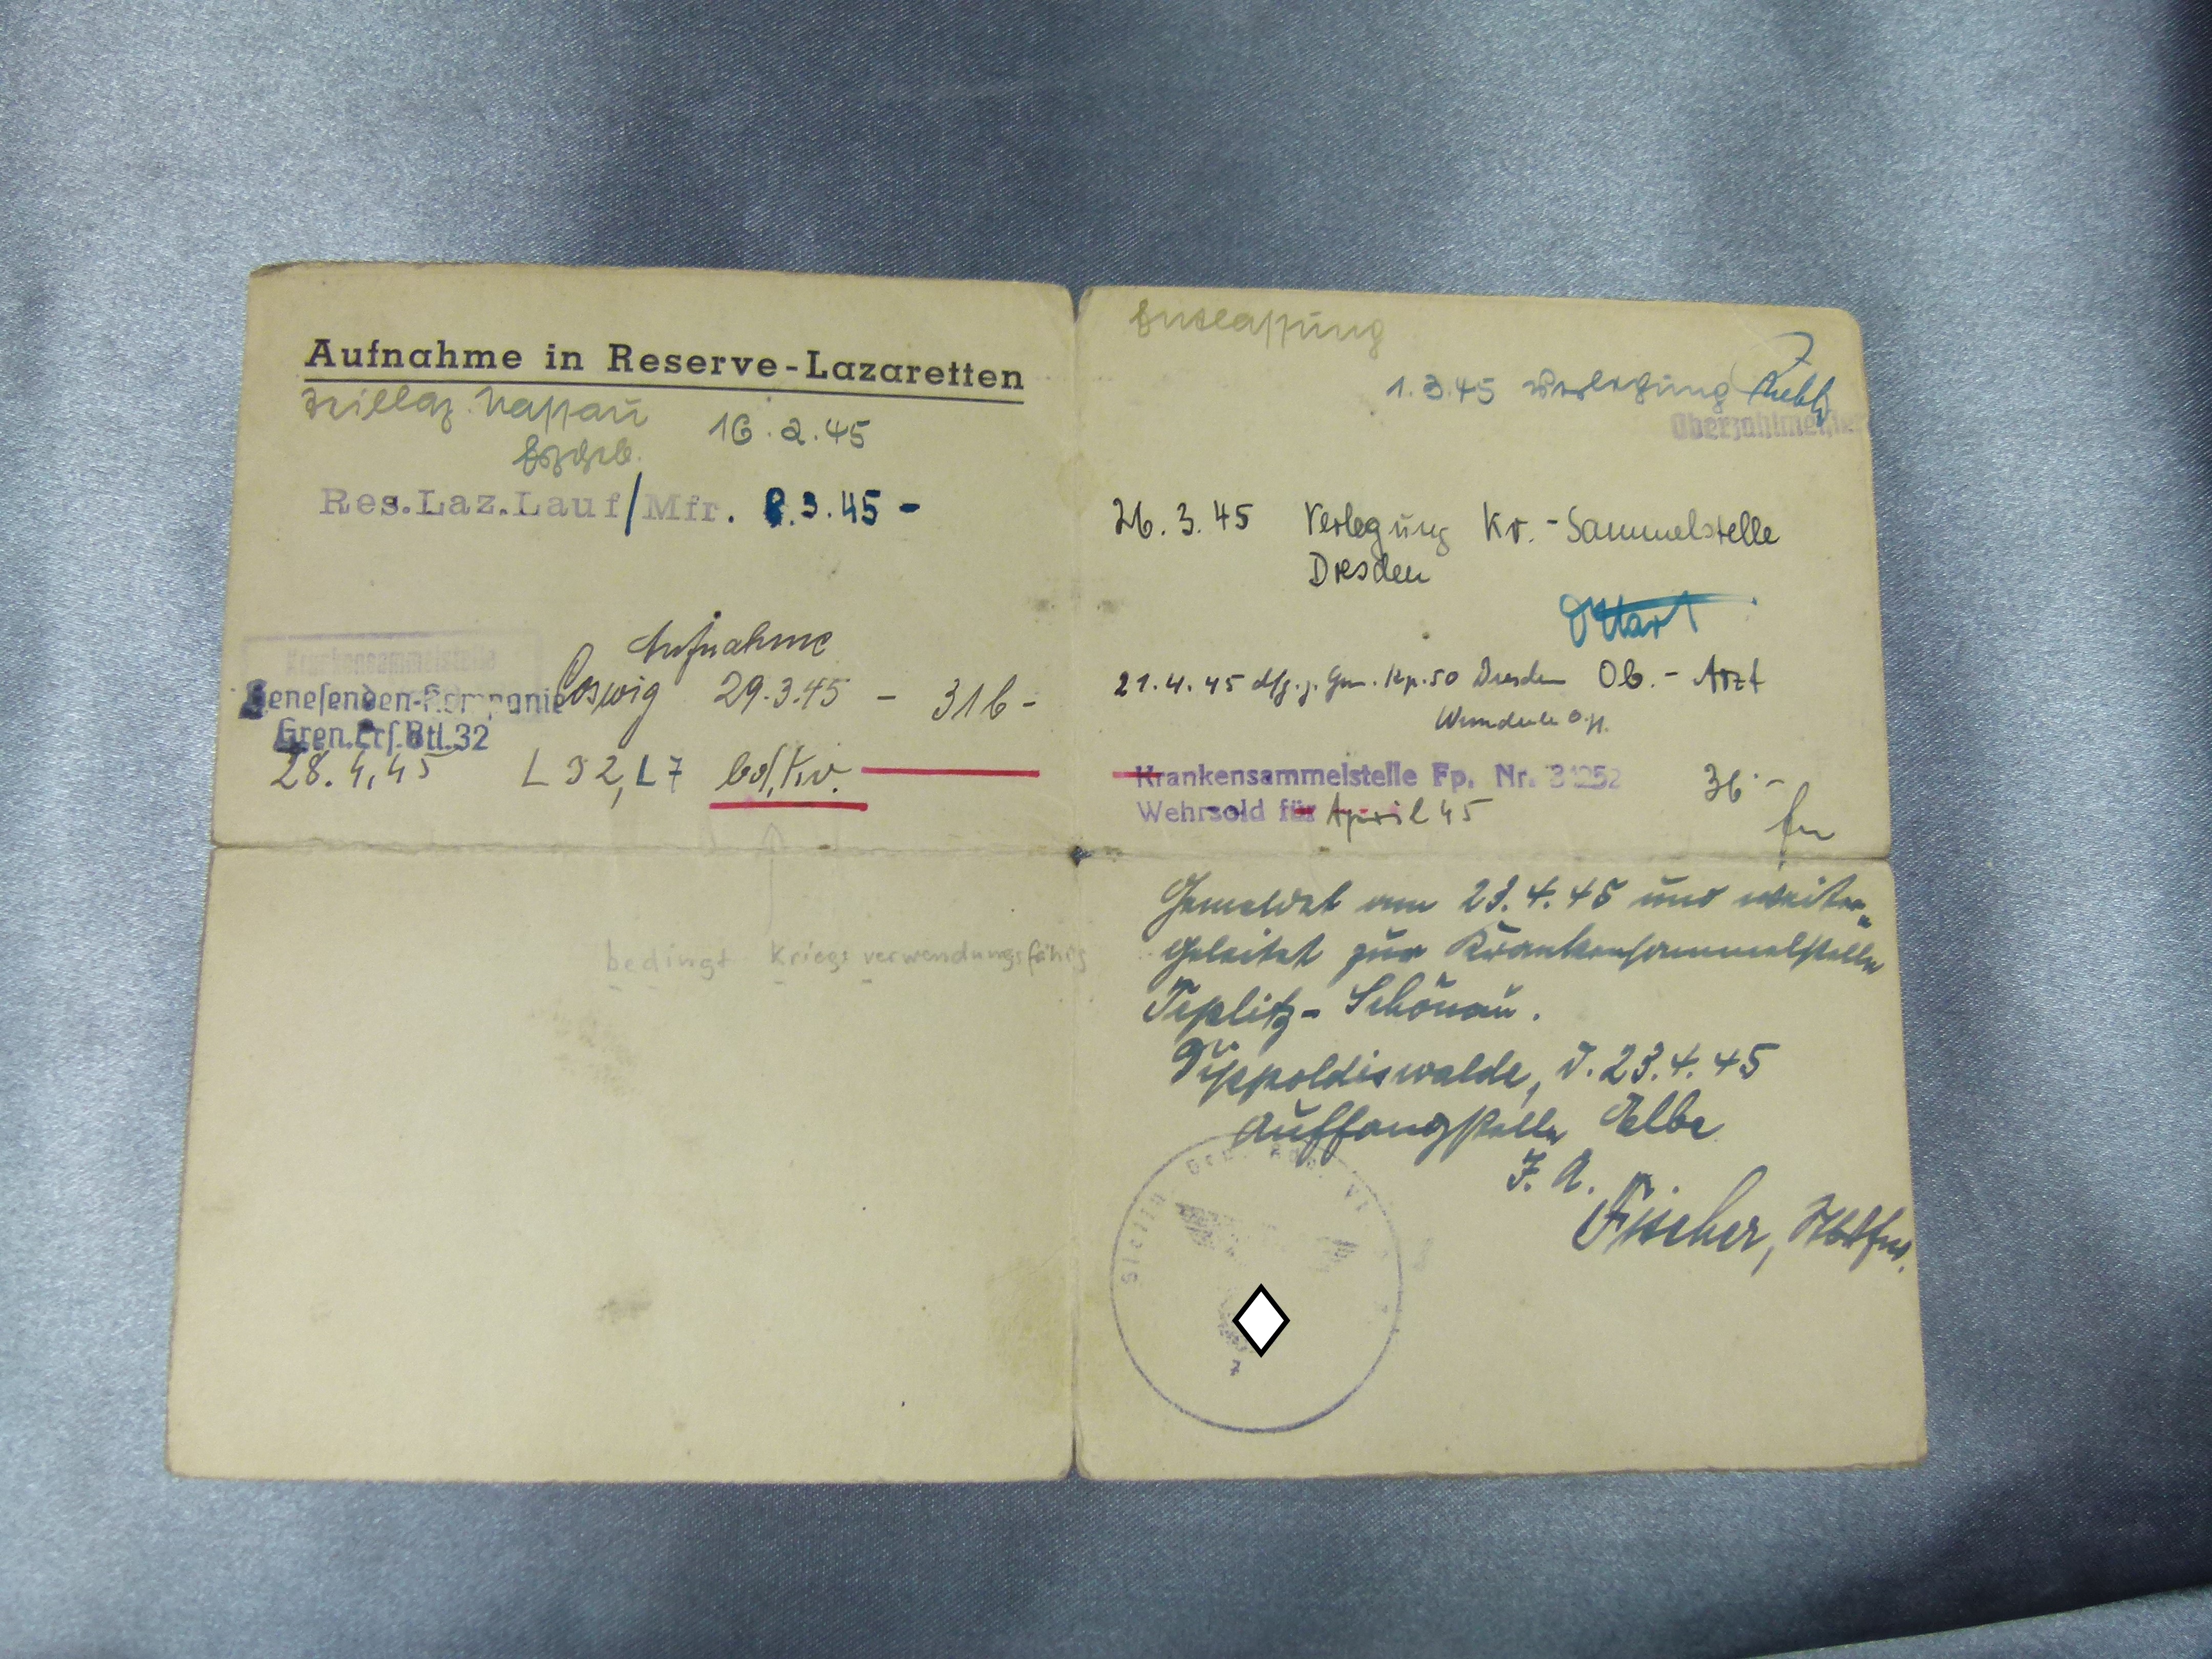 Aufnahme in Reserve-Lazaretten
Teillaz. Nassau 16.2.45
Erzgeb.
Res.Laz.Lauf/Mfr. 8.3.45 -
Krankensammelstelle
Aufnahme
Coswig 29.3.45 - 31b -
Genesenden-Kompanie
Gren.Ers.Btl.32
28.4.45 L 32, L7 bd.Kv.
bedingt Kriegsverwendungsfähig
Entlassung
1.3.45 Verlegung
Oberzahlmeister
26.3.45 Verlegung Kr.-Sammelstelle
Dresden
21.4.45 Gen. Kp. 50 Dresden Ob.-Arzt
Krankensammelstelle Fp. Nr. 31252 36.-
Wehrsold für April 45
Gemeldet am 23.4.45 und weiter-
geleitet zur Krankensammelstelle
Teplitz-Schönau.
Dippoldiswalde, d. 23.4.45
Auffangstelle Elbe
I. A.
Fischer,